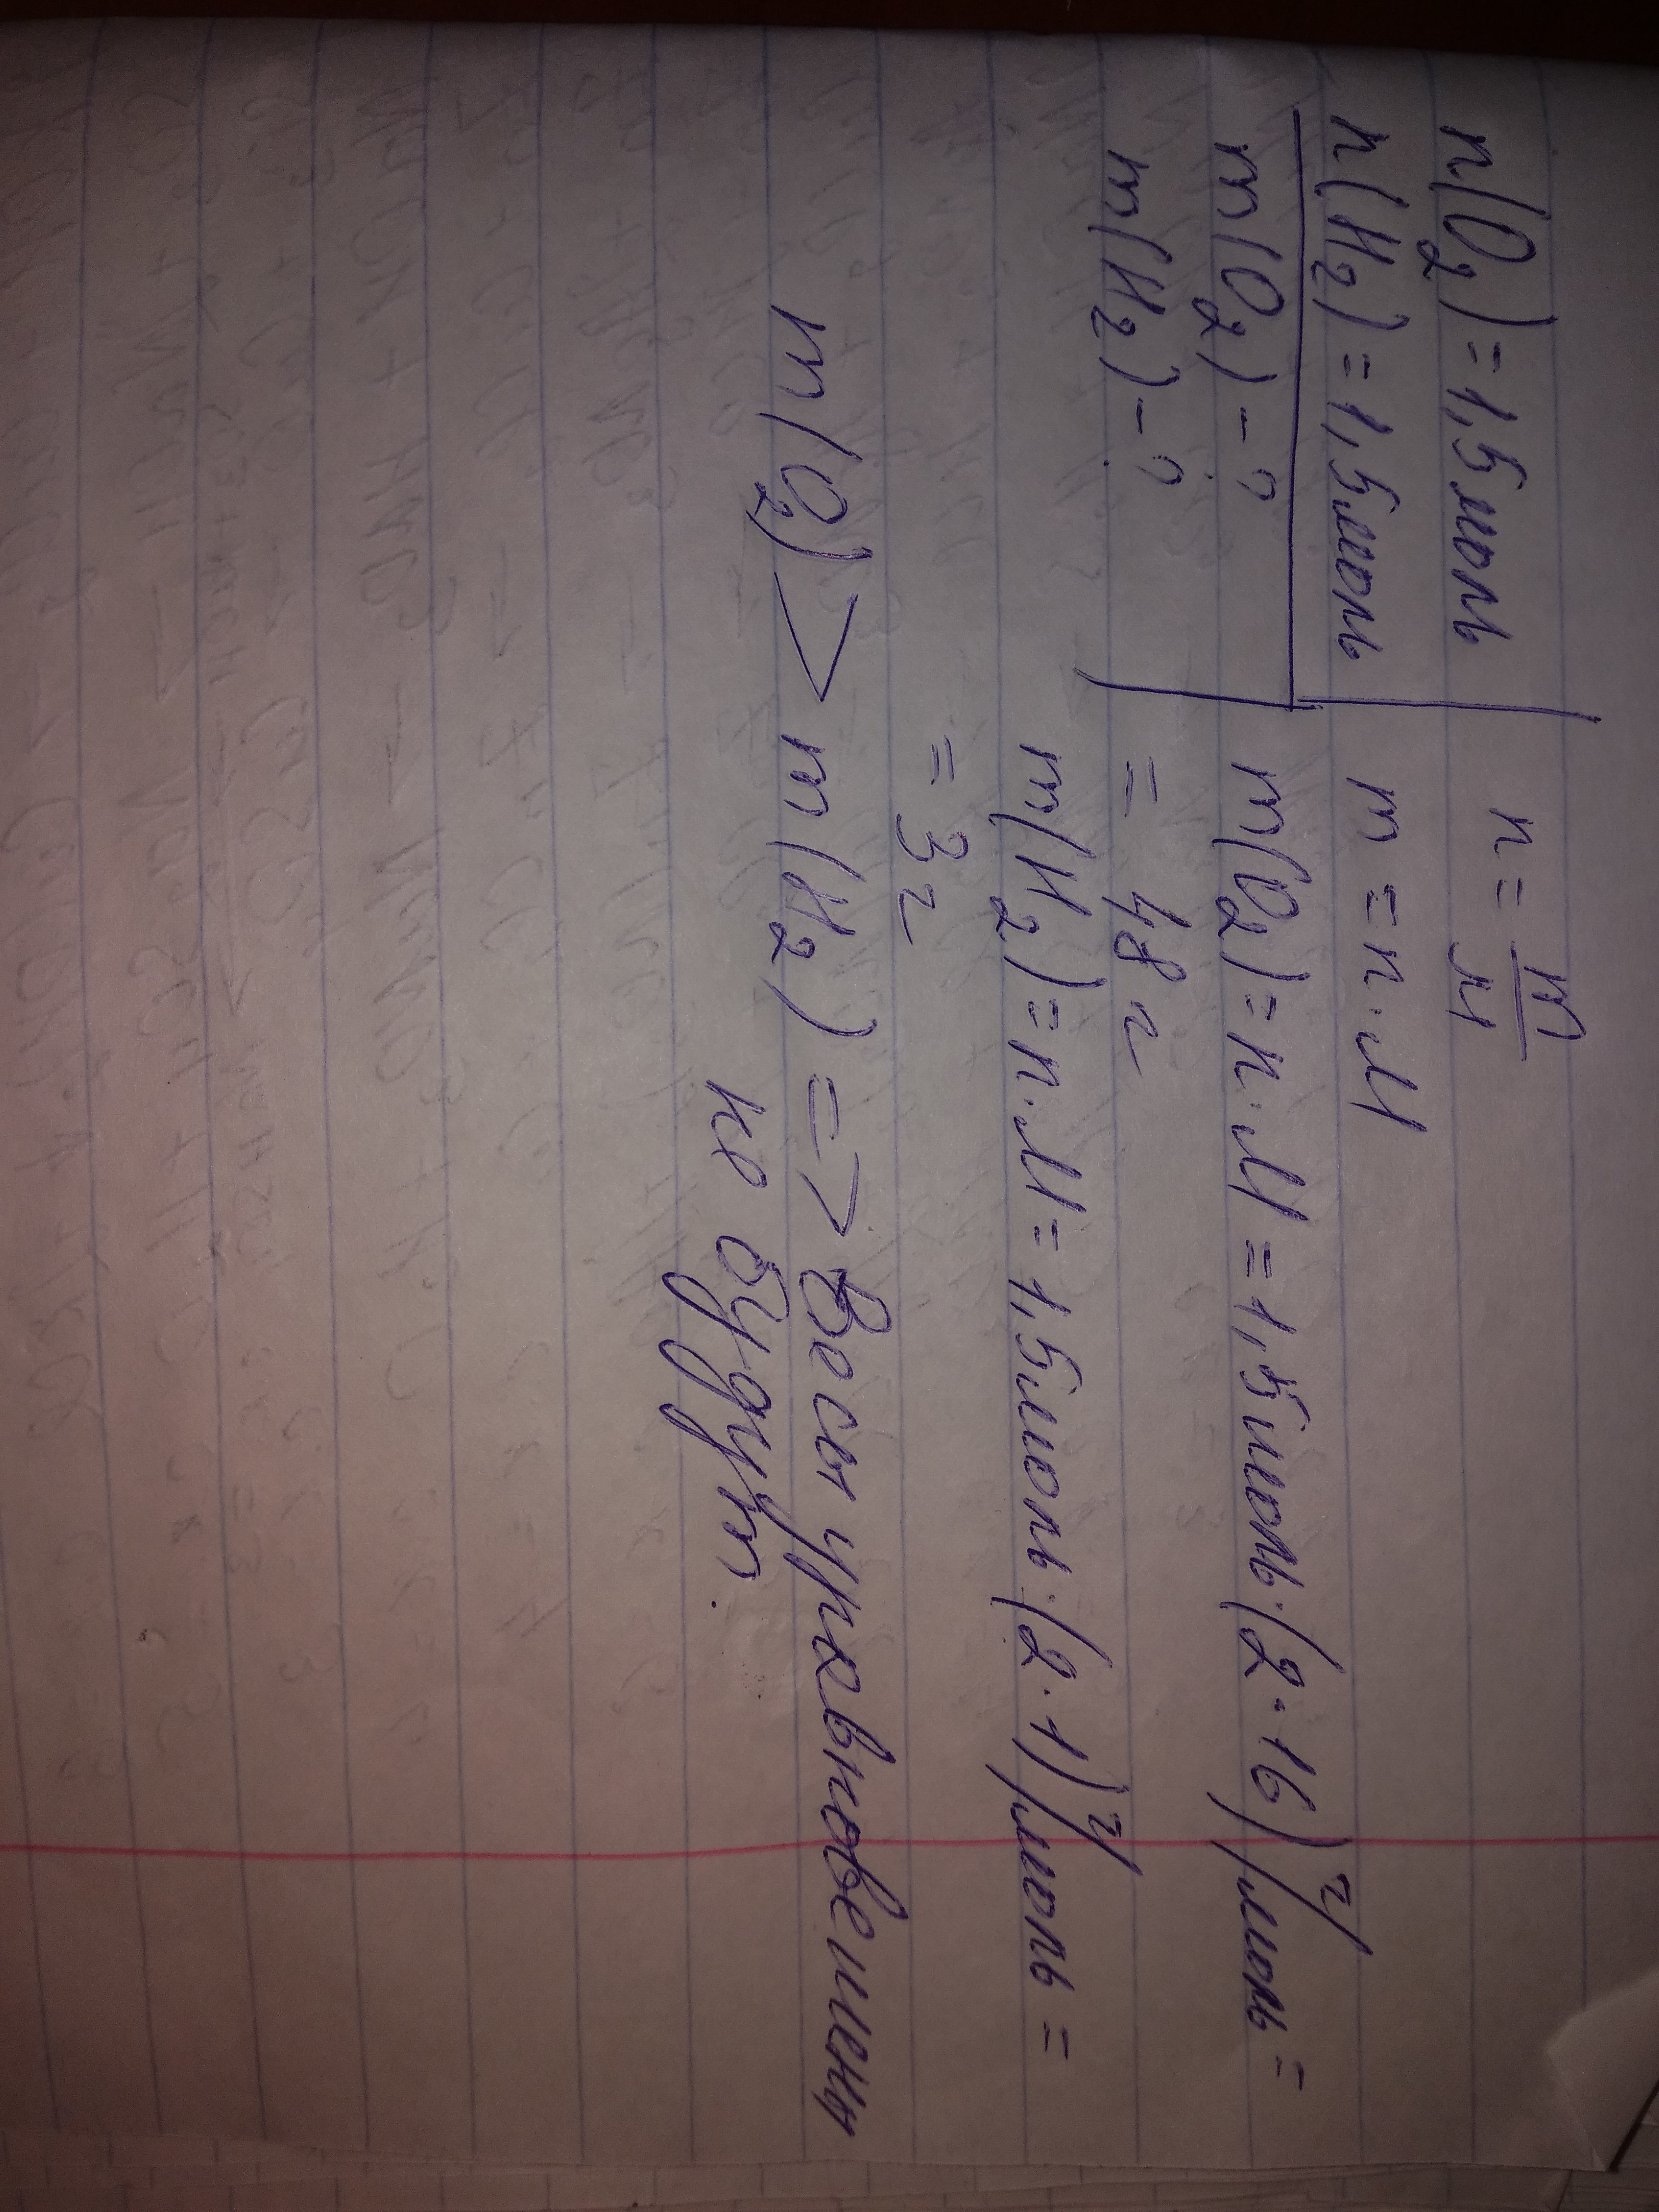 n(O₂) = 1,5 моль
n(H₂) = 1,5 моль
m(O₂) - ?
m(H₂) - ?
n = m/M
m = n · M
m(O₂) = n · M = 1,5 моль · (2 · 16) г/моль =
= 48 г
m(H₂) = n · M = 1,5 моль · (2 · 1) г/моль =
= 3 г
m(O₂) > m(H₂) => Весы уравновешены
не будут.